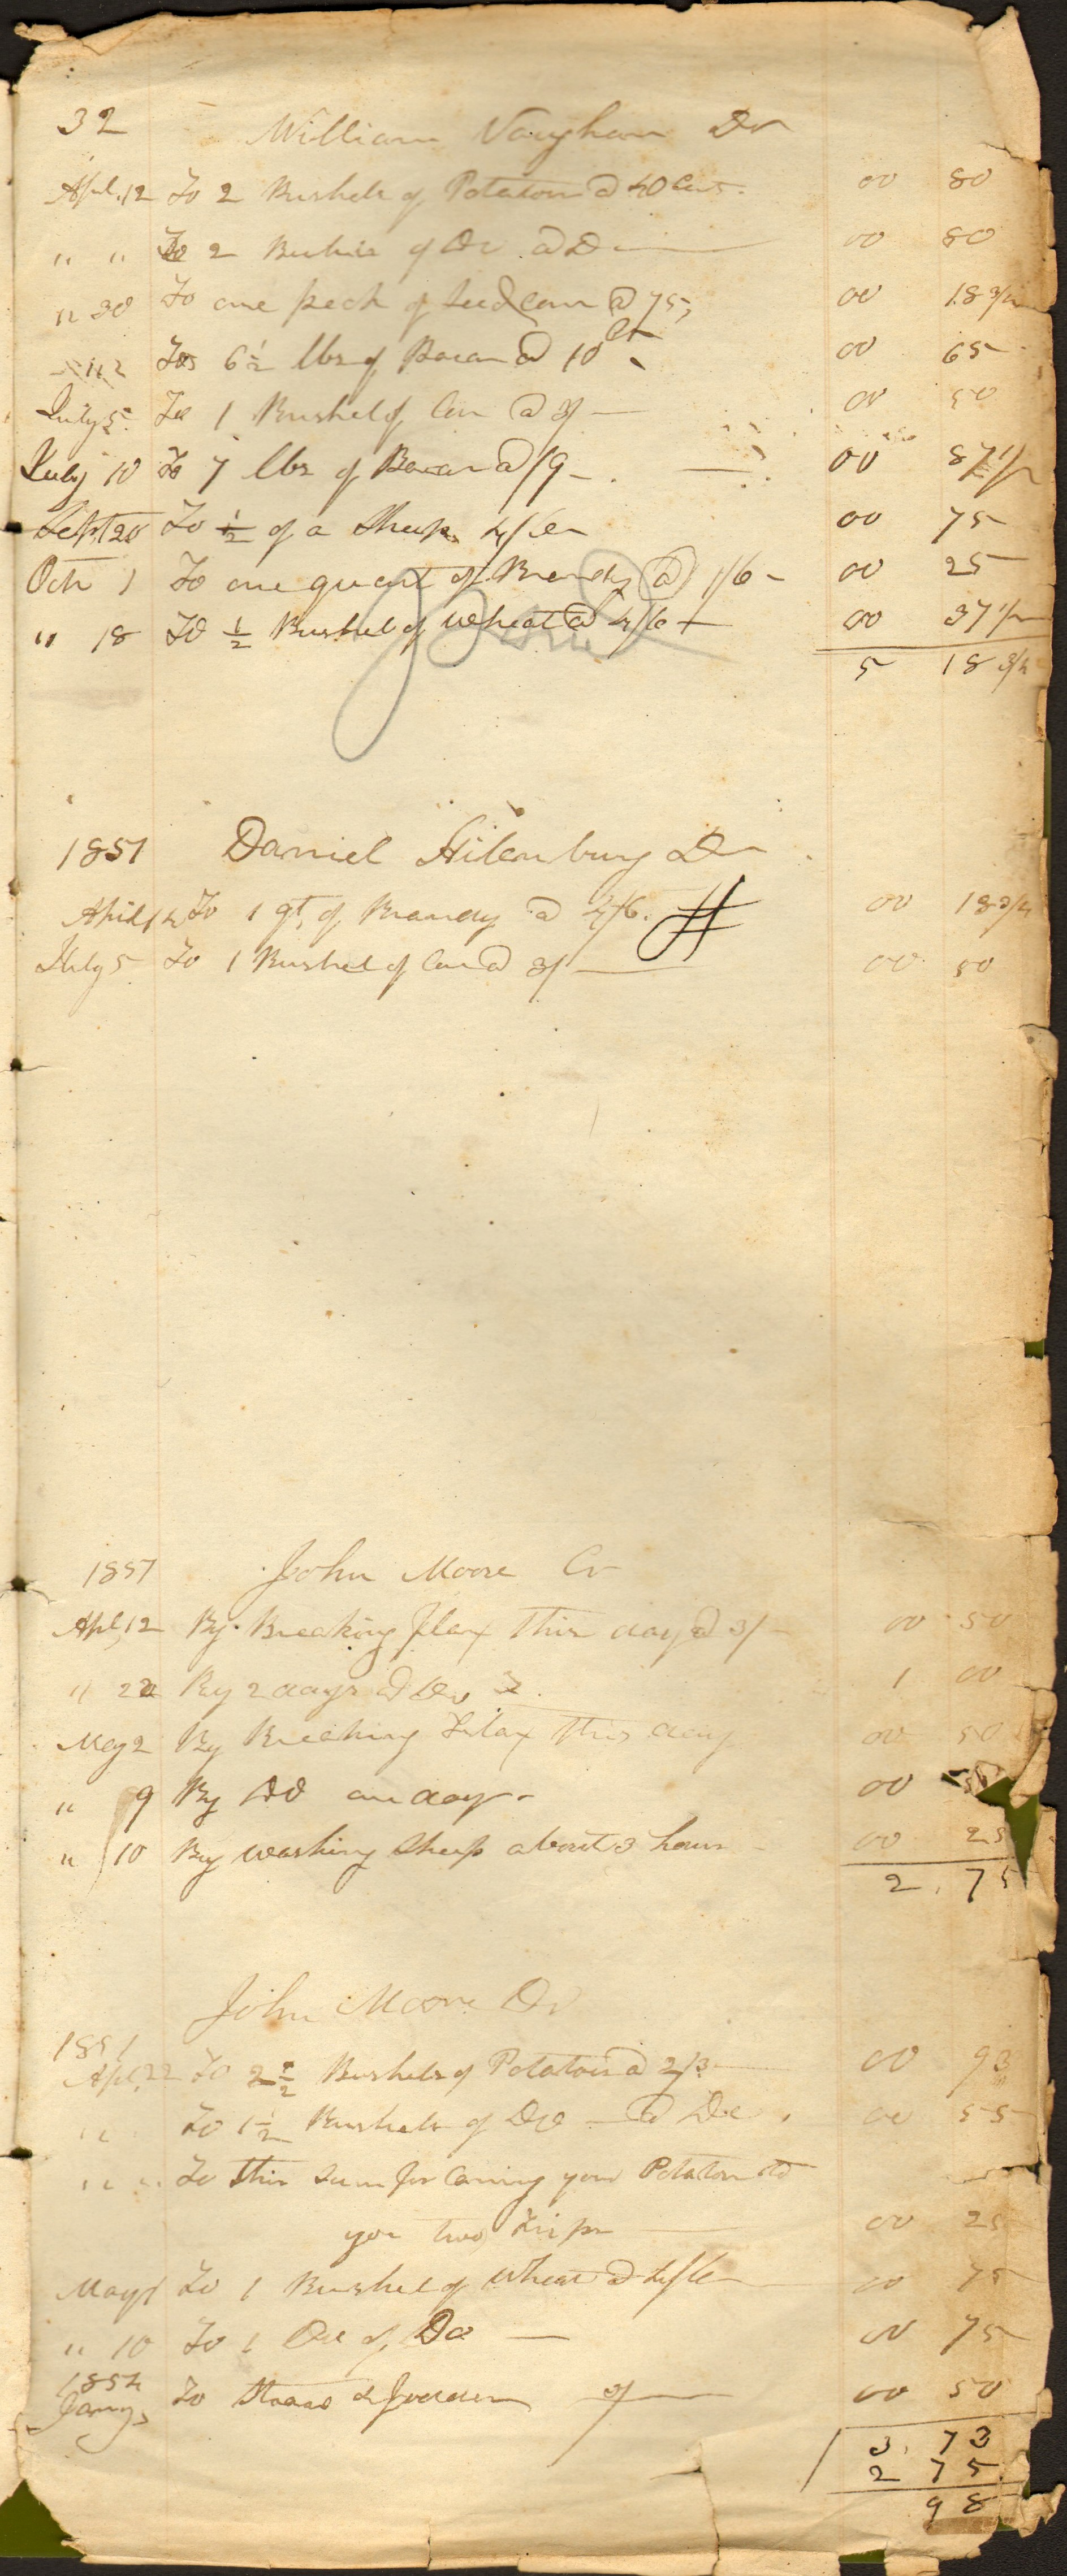 32 William Vaughan Dr
Apl. 12 To 2 Bushels of Potatoes @ 40 Cts. 00 80
" " To 2 Bushels of Do @ Do 00 80
" 30 To one peck of Seed Corn @ 75, 00 18 3/4
" 2 To 6 1/2 lbs of Bacon @ 10 Cts 00 65
July 5 To 1 Bushel of Corn @ 3/ 00 50
July 10 To 7 lbs of Bacon @ /9 00 87 1/2
Sept 20 To 1/2 of a Sheep 4/6 00 75
Oct 1 To one quart of Brandy @ 1/6 00 25
" 18 To 1/2 Bushel of Wheat @ 4/6 00 37 1/2
5 18 3/4
1851 Daniel Dr
April To 1 qt. of Brandy @ 00 18 3/4
July 5 To 1 Bushel of Corn @ 3/ 00 50
1851 John Moore Cr
Apl. 12 By Breaking flax this day @ 3/ 00 50
" 22 By 2 days @ Do 1 00
May 2 By Breaking Flax this day 00 50
" 9 By Do one day 00 50
" 10 By washing Sheep about 3 hours 00 25
2. 75
John Moore Dr
1851
Apl. 22 To 2 1/2 Bushels of Potatoes @ 2/3 00 93
" To 1 1/2 Bushels of Do @ Do 00 55
" " To this Sum for Caring your Potatoes to
you two Trips 00 25
May 1 To 1 Bushel of Wheat @ 4/6 00 75
" 10 To 1 Do of Do 00 75
1852
Jany To & fodder 00 50
3. 73
2 75
98